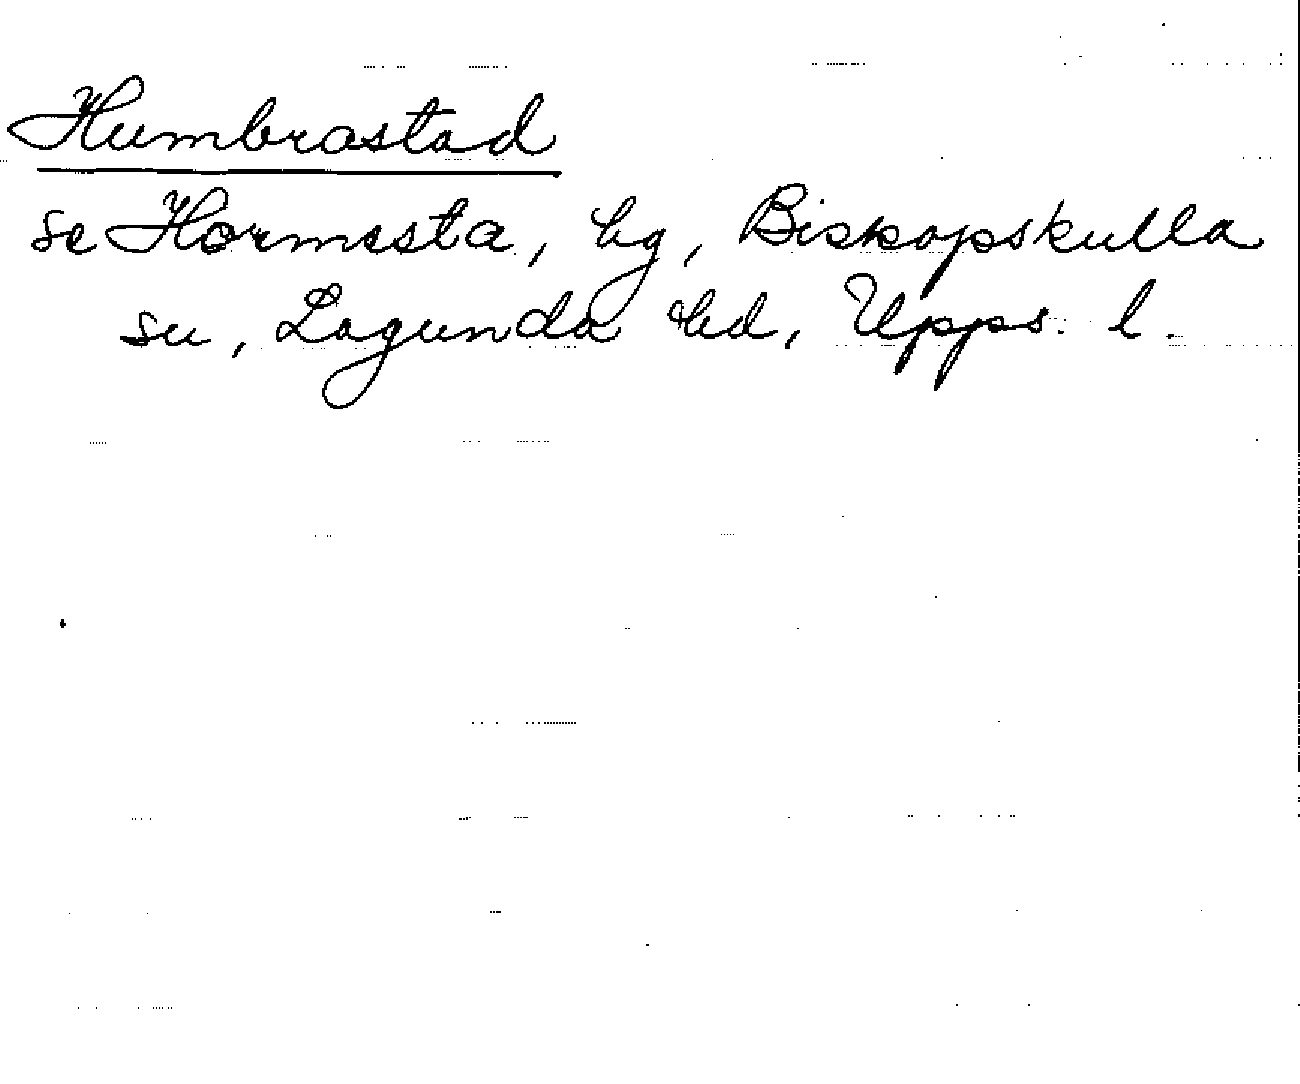 Humbrastad
se Hormesta, by, Biskopskulla
sn, Lagunda hd, Upps. l.